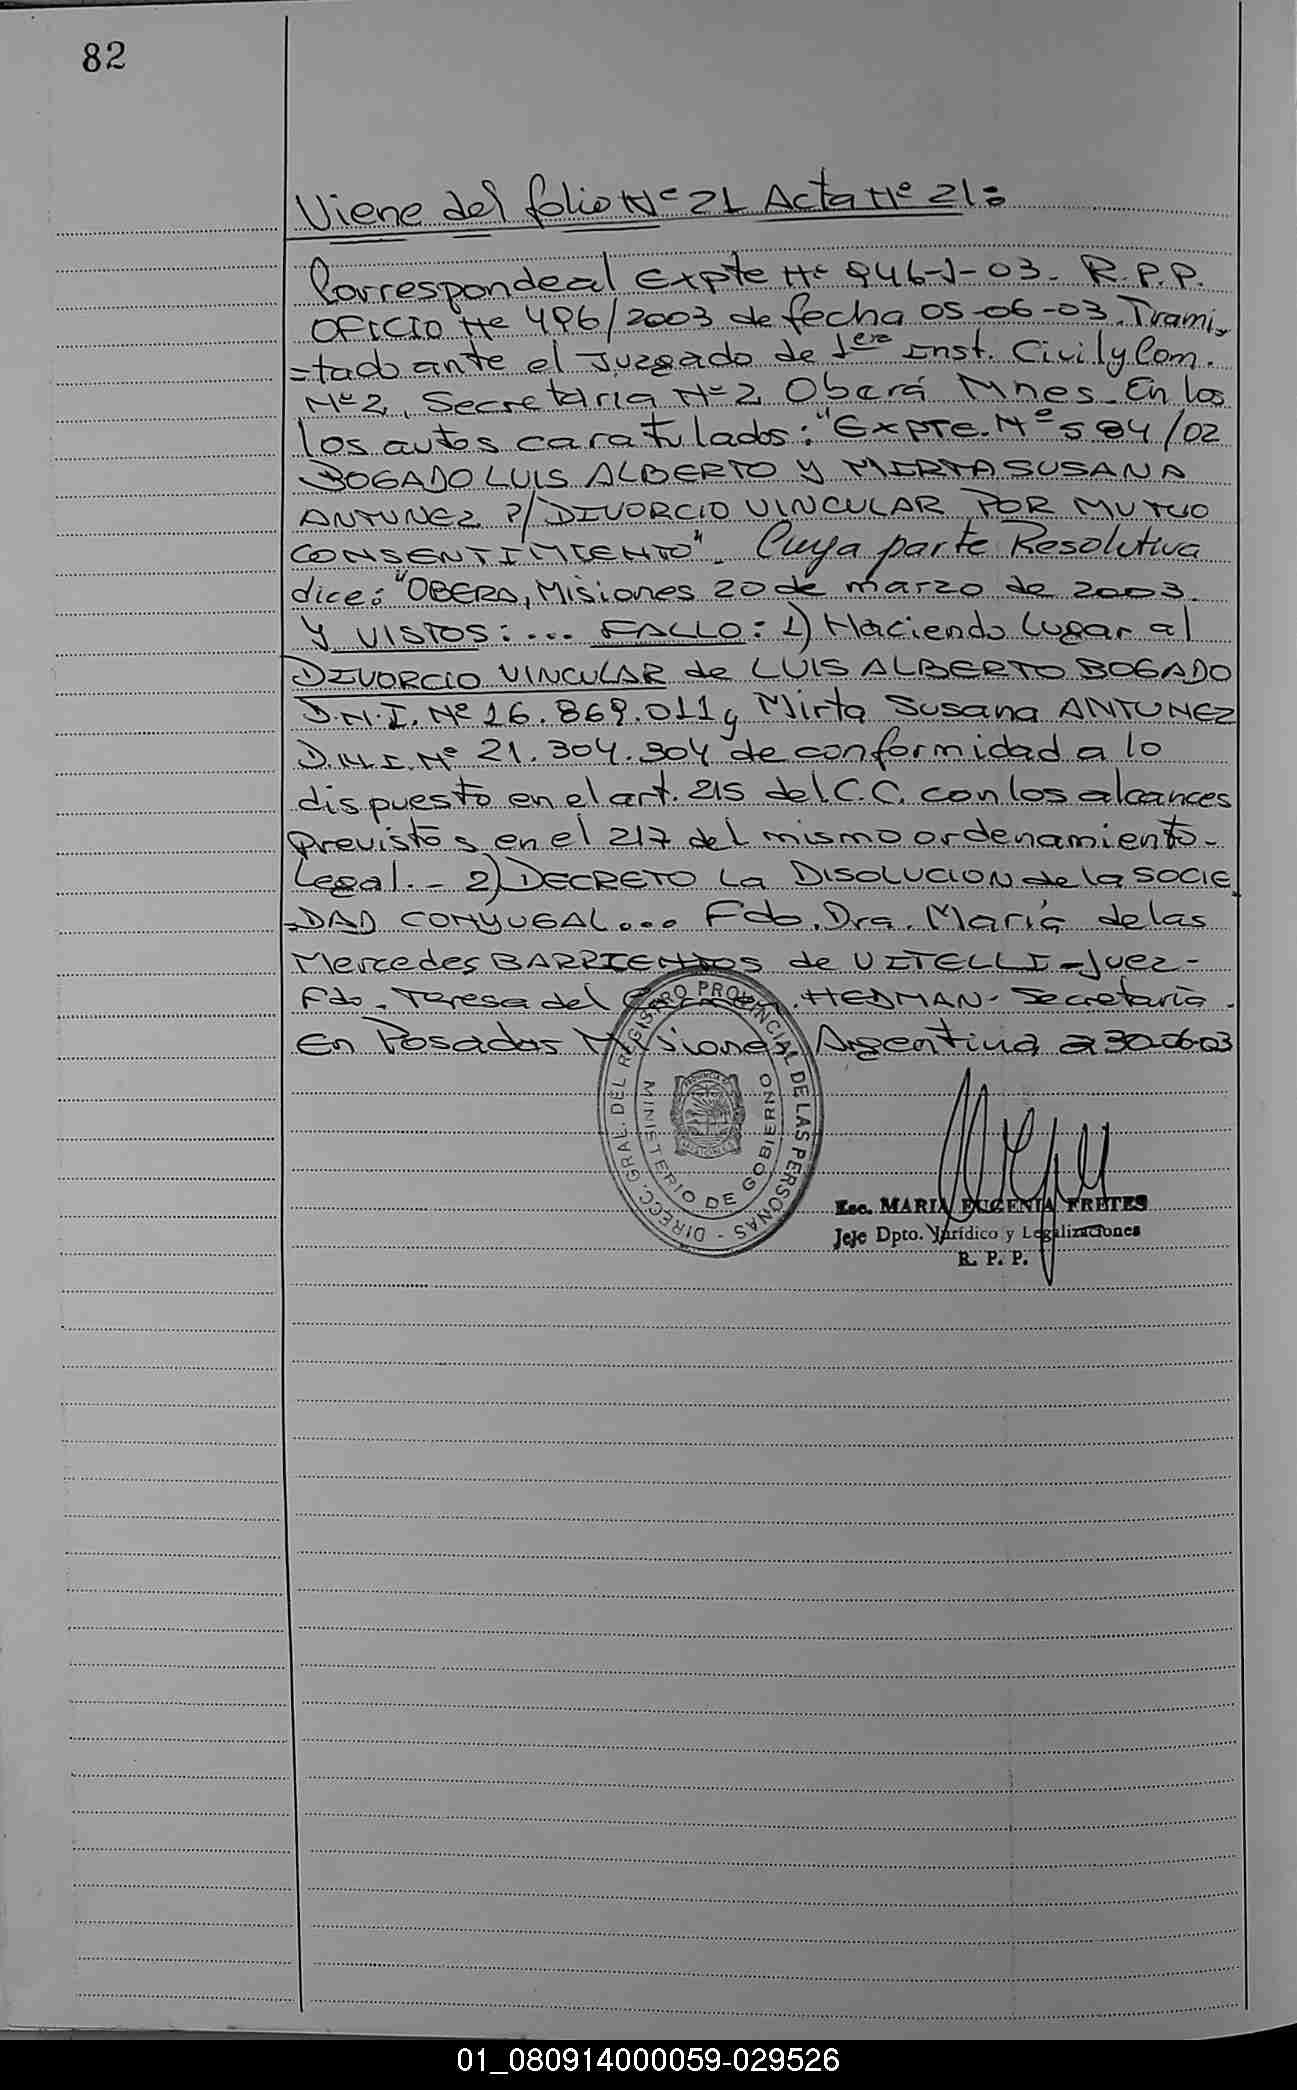 82
Viene del folio Nº 21 Acta Nº 21:
Corresponde al Expte Nº 946-J-03- R.P.P.
OFICIO Nº 496/2003 de fecha 05-06-03. Trami-
=tado ante el Juzgado de 1era Inst. Civil y Com.
Nº 2, Secretaria Nº 2 Oberá Mnes. En los
los autos caratulados: "Expte. Nº 584/02
BOGADO LUIS ALBERTO y MIRTA SUSANA
ANTUNEZ P/ DIVORCIO VINCULAR POR MUTUO
CONSENTIMIENTO". Cuya parte Resolutiva
dice: "OBERA, Misiones 20 de marzo de 2003.
Y VISTOS:... FALLO: 1) Haciendo Lugar al
DIVORCIO VINCULAR de LUIS ALBERTO BOGADO
D.N.I. Nº 16.869.011 y Mirta Susana ANTUNEZ
D.N.I. Nº 21.304.304 de conformidad a lo
dispuesto en el art. 215 del C.C. con los alcances
previstos en el 217 del mismo ordenamiento-
Legal.- 2) DECRETO La DISOLUCION de la SOCIE
=DAD CONYUGAL... Fdo. Dra. María de las
Mercedes BARRIENTOS de VITELLI-Juez-
Fdo. Teresa del HEDMAN- Secretaria.
En Posadas Misiones Argentina a 30-06-03
DIRECC. GRAL. DEL REGISTRO PROVINCIAL DE LAS PERSONAS -
MINISTERIO DE GOBIERNO
Esc. MARIA EUGENIA FRETES
Jefe Dpto. Jurídico y Legalizaciones
R. P. P.
01_080914000059-029526